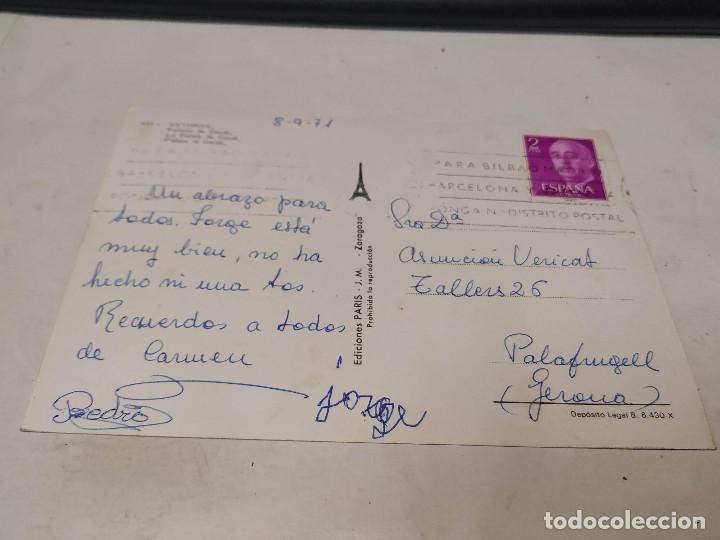 8-9-71
Un abrazo para
todos. Jorge está
muy bien, no ha
hecho ni una tos.
Recuerdos a todos
de Carmen
Pedro
Jorge
Ediciones PARIS - J. M. - Zaragoza
Prohibida la reproducción
2
ESPAÑA
PARA BILBAO M
BARCELONA Y
PONGA N.º DISTRITO POSTAL
Sra Dª
Asunción Vericat
Tallers 26
Palafrugell
(Gerona)
Depósito Legal B. 6.430-X
todocoleccion.net